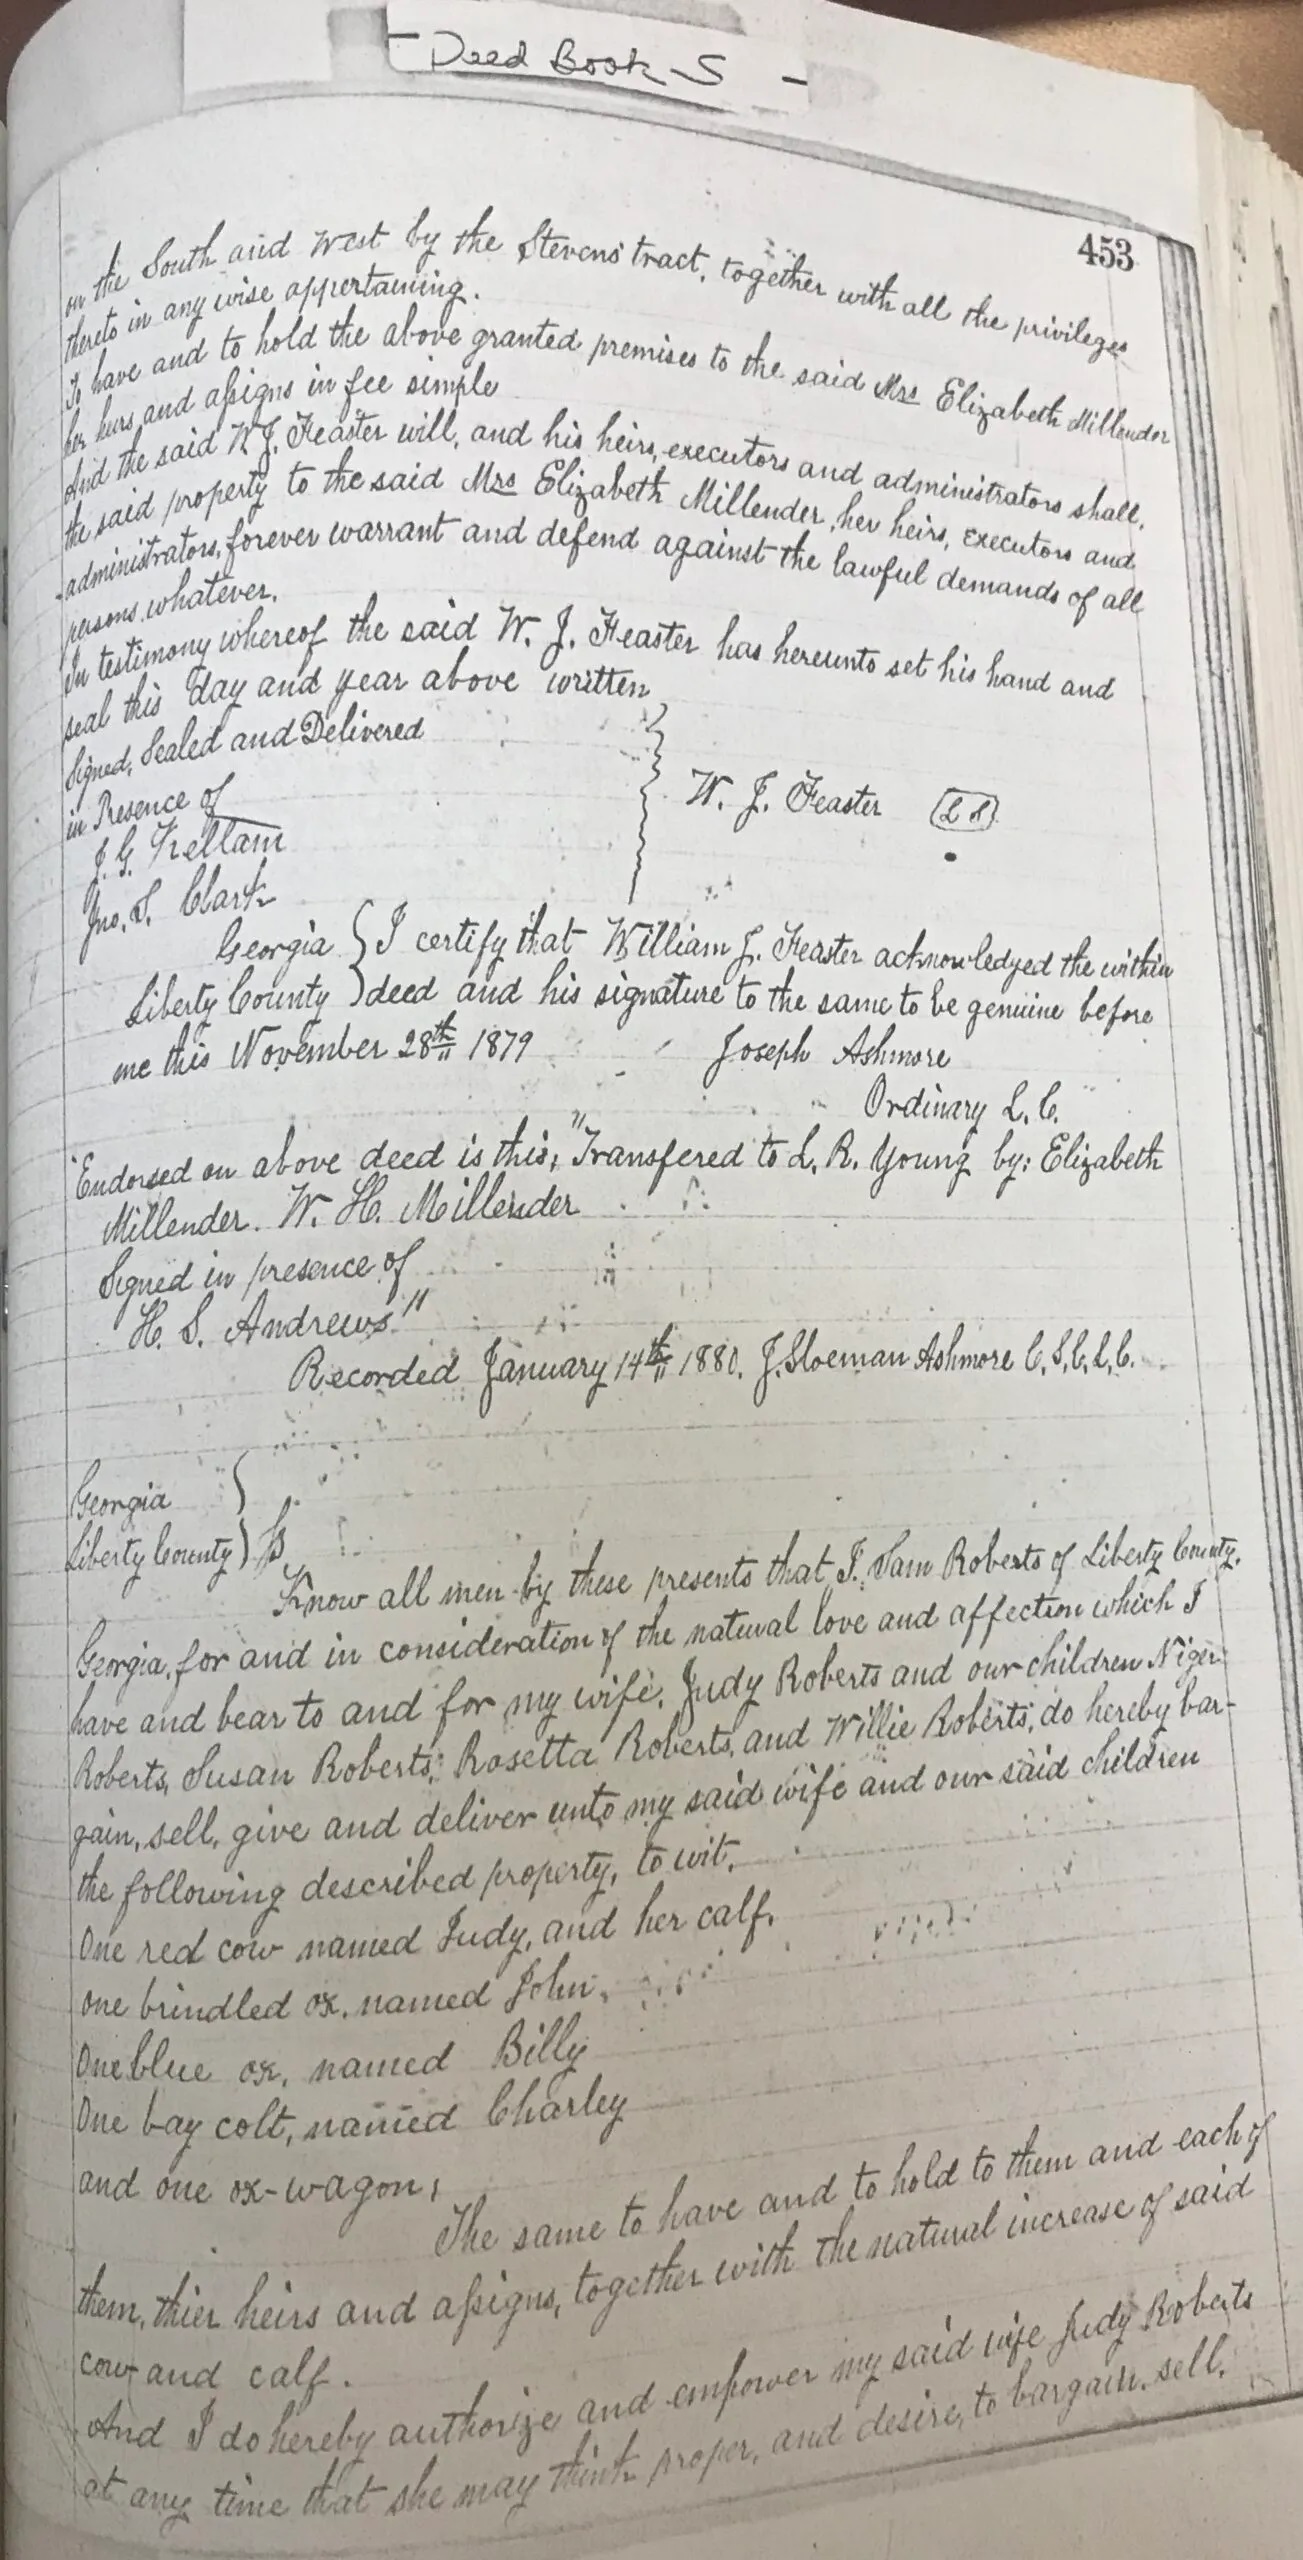 - Deed Book S -
453
on the South and West by the Stevens tract, together with all the privileges
thereto in any wise appertaining.
To have and to hold the above granted premises to the said Mrs Elizabeth Millender
her heirs and assigns in fee simple
And the said W J. Feaster will, and his heirs, executors and administrators shall,
the said property to the said Mrs Elizabeth Millender, her heirs, executors and
administrators, forever warrant and defend against the lawful demands of all
persons whatever.
In testimony whereof the said W. J. Feaster has hereunto set his hand and
seal this day and year above written
Signed, Sealed and Delivered
in Presence of
W. J. Feaster (L S)
J. G. Kellam
Jno. S. Clark
Georgia } I certify that William J. Feaster acknowledged the within
Liberty County } deed and his signature to the same to be genuine before
me this November 28th 1879 Joseph Ashmore
Ordinary L. C.
Endorsed on above deed is this, "Transfered to L. R. Young by: Elizabeth
Millender. W. H. Millender
Signed in presence of
H. S. Andrews"
Recorded January 14th 1880. J. Sloeman Ashmore C. S. C. L. C.
Georgia }
Liberty County } Ss
Know all men by these presents that I, Sam Roberts of Liberty County,
Georgia, for and in consideration of the natural love and affection which I
have and bear to and for my wife, Judy Roberts and our children Niger
Roberts, Susan Roberts, Rosetta Roberts, and Willie Roberts, do hereby bar-
gain, sell, give and deliver unto my said wife and our said children
the following described property, to wit,
One red cow named Judy, and her calf.
one brindled ox, named John,
One blue ox, named Billy
One bay colt, named Charley
and one ox-wagon,
The same to have and to hold to them and each of
them, thier heirs and assigns, together with the natural increase of said
cow and calf.
And I do hereby authorize and empower my said wife Judy Roberts
at any time that she may think proper, and desire, to bargain, sell,